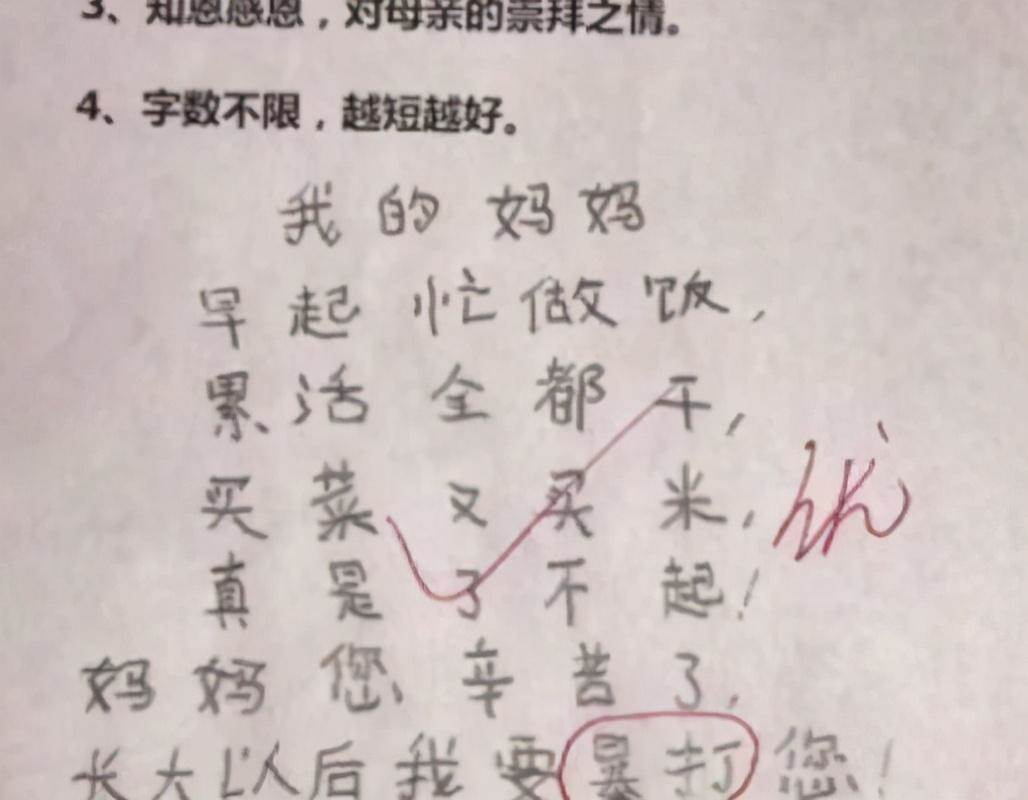 3、知恩感恩，对母亲的崇拜之情。
4、字数不限，越短越好。
我的妈妈
早起忙做饭，
累活全都干，
买菜又买米，
真是了不起！
妈妈您辛苦了，
长大以后我要暴打您！
优